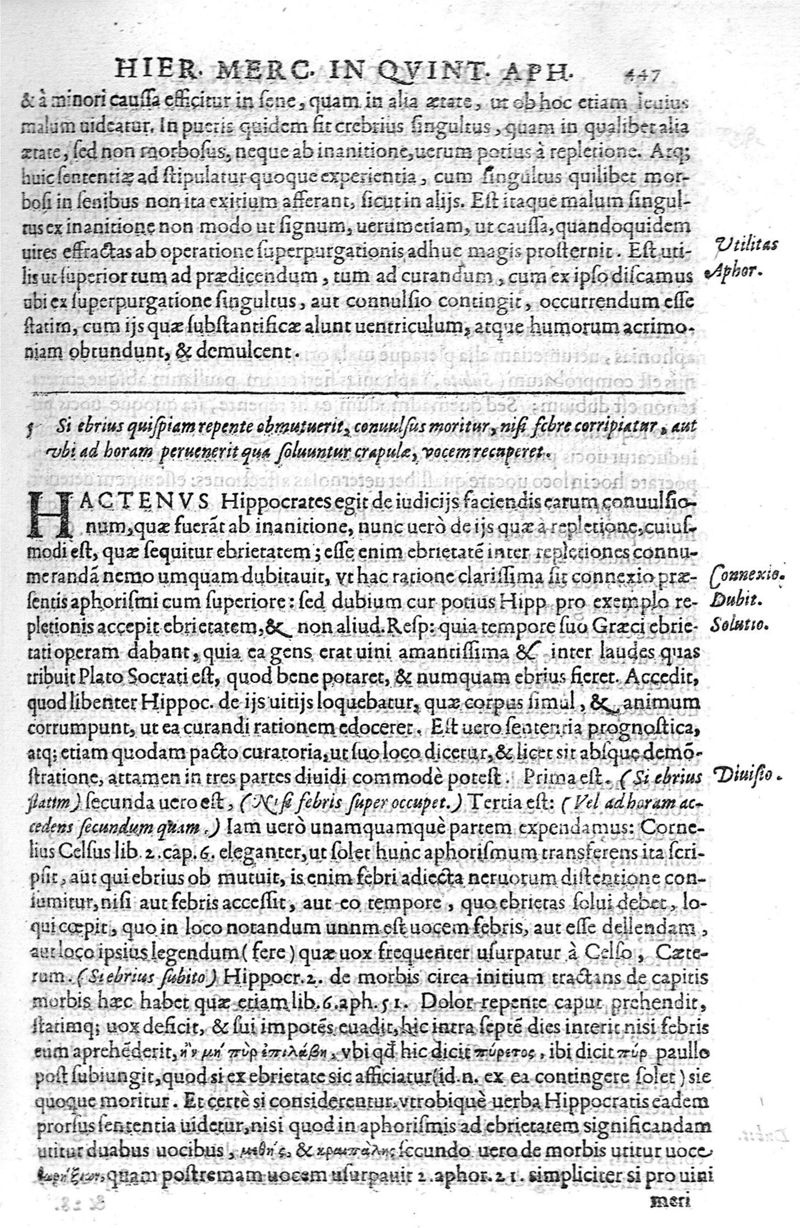 HIER. MERC. IN QVINT. APH. 447
& à minori caussa efficitur in sene, quam in alia ætate, ut ob hoc etiam leuius
malum uideatur. In pueris quidem fit crebrius singultus, quam in qualibet alia
ætate, sed non morbosus, neque ab inanitione, uerum potius à repletione. Atq;
huic sententiæ ad stipulatur quoque experientia, cum singultus quilibet mor-
bosi in senibus non ita exitium afferant, sicut in alijs. Est itaque malum singul-
tus ex inanitione non modo ut signum, uerumetiam, ut caussa, quandoquidem
uires effractas ab operatione superpurgationis adhuc magis prosternit. Est uti-
lis ut superior tum ad prædicendum, tum ad curandum, cum ex ipso discamus
ubi ex superpurgatione singultus, aut conuulsio contingit, occurrendum esse
statim, cum ijs quæ substantificæ alunt uentriculum, atque humorum acrimo-
niam obtundunt, & demulcent.
Utilitas
Aphor.
5 Si ebrius quispiam repente obmutuerit, conuulsus moritur, nisi febre corripiatur, aut
vbi ad horam peruenerit qua soluuntur crapulæ, vocem recuperet.
HACTENVS Hippocrates egit de iudicijs faciendis earum conuulsio-
num, quæ fuerāt ab inanitione, nunc uerò de ijs quæ à repletione, cuius-
modi ēst, quæ sequitur ebrietatem; esse enim ebrietatē inter repletiones connu-
merandā nemo umquam dubitauit, vt hac ratione clarissima sit connexio præ-
sentis aphorismi cum superiore: sed dubium cur potius Hipp pro exemplo re-
pletionis accepit ebrietatem, & non aliud. Resp: quia tempore suo Græci ebrie-
tati operam dabant, quia ea gens erat uini amantissima & inter laudes quas
tribuit Plato Socrati est, quod bene potaret, & numquam ebrius fieret. Accedit,
quod libenter Hippoc. de ijs uitijs loquebatur, quæ corpus simul, & animum
corrumpunt, ut ea curandi rationem edoceret. Est uero sententia prognostica,
atq; etiam quodam pacto curatoria, ut suo loco dicetur, & licet sit absque demō-
stratione, attamen in tres partes diuidi commodè potest. Prima est. (Si ebrius
statim) secunda uero est, (Nisi febris super occupet.) Tertia est: (Vel ad horam ac-
cedens secundum quam.) Iam uerò unamquamquè partem expendamus: Corne-
lius Celsus lib. 2. cap. 6. eleganter, ut solet hunc aphorismum transferens ita scri-
psit, aut qui ebrius ob mutuit, is enim febri adiecta neruorum distentione con-
sumitur, nisi aut febris accessit, aut eo tempore, quo ebrietas solui debet, lo-
qui cœpit, quo in loco notandum unum est uocem febris, aut esse dellendam,
aut loco ipsius legendum (fere) quæ uox frequenter usurpatur à Celso, Cæte-
rum. (Si ebrius subito) Hippocr. 2. de morbis circa initium tractans de capitis
morbis hæc habet quæ etiam lib. 6. aph. 51. Dolor repente caput prehendit,
statimq; uox deficit, & sui impotēs euadit, hic intra septē dies interit nisi febris
eum aprehēderit, ἢν μὴ πῦρ ἐπιλάβῃ, vbi qđ hic dicit πύρετος, ibi dicit πῦρ paullo
post subiungit, quod si ex ebrietate sic afficiatur (id. n. ex ea contingere solet) sie
quoque moritur. Et certè si considerentur vtrobiquè uerba Hippocratis eadem
prorsus sententia uidetur, nisi quod in aphorismis ad ebrietatem significandam
utitur duabus uocibus, μέθης, & κραιπάλης secundo uero de morbis utitur uoce
quam postremam uocem usurpauit 2. aphor. 21. simpliciter si pro uini
meri
Connexio.
Dubit.
Solutio.
Diuisio.